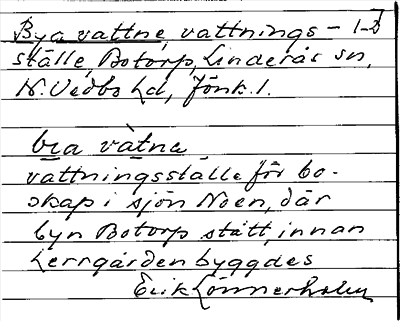 Bya vattne, vattnings- 1-2
ställe, Botorp, Linderås sn,
N. Vedbo hd, Jönk. l.
bya vàtna
vattningsställe för bo-
skap i sjön Noen, där
byn Botorp stått, innan
herrgården byggdes
Erik Lönnerholm